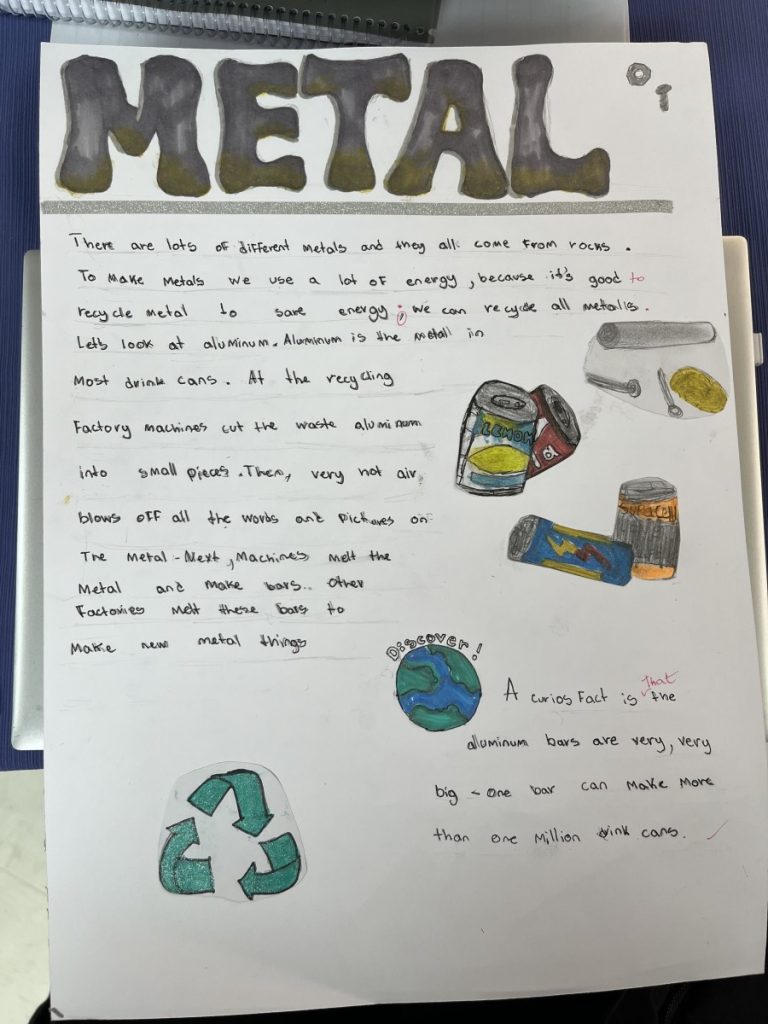 METAL
There are lots of different metals and they all come from rocks.
To make metals we use a lot of energy, because it's good to
recycle metal to save energy; we can recycle all metalls.
Let's look at aluminum. Aluminum is the metall in
most drink cans. At the recycling
Factory machines cut the waste aluminum
into small pieces. Then, very hot air
blows off all the words and pictures on
The metal - Next, machines melt the
Metal and make bars. Other
Factories melt these bars to
Make new metal things
LEMON
Discover!
A curios Fact is That the
aluminum bars are very, very
big - one bar can make more
than one million drink cans.